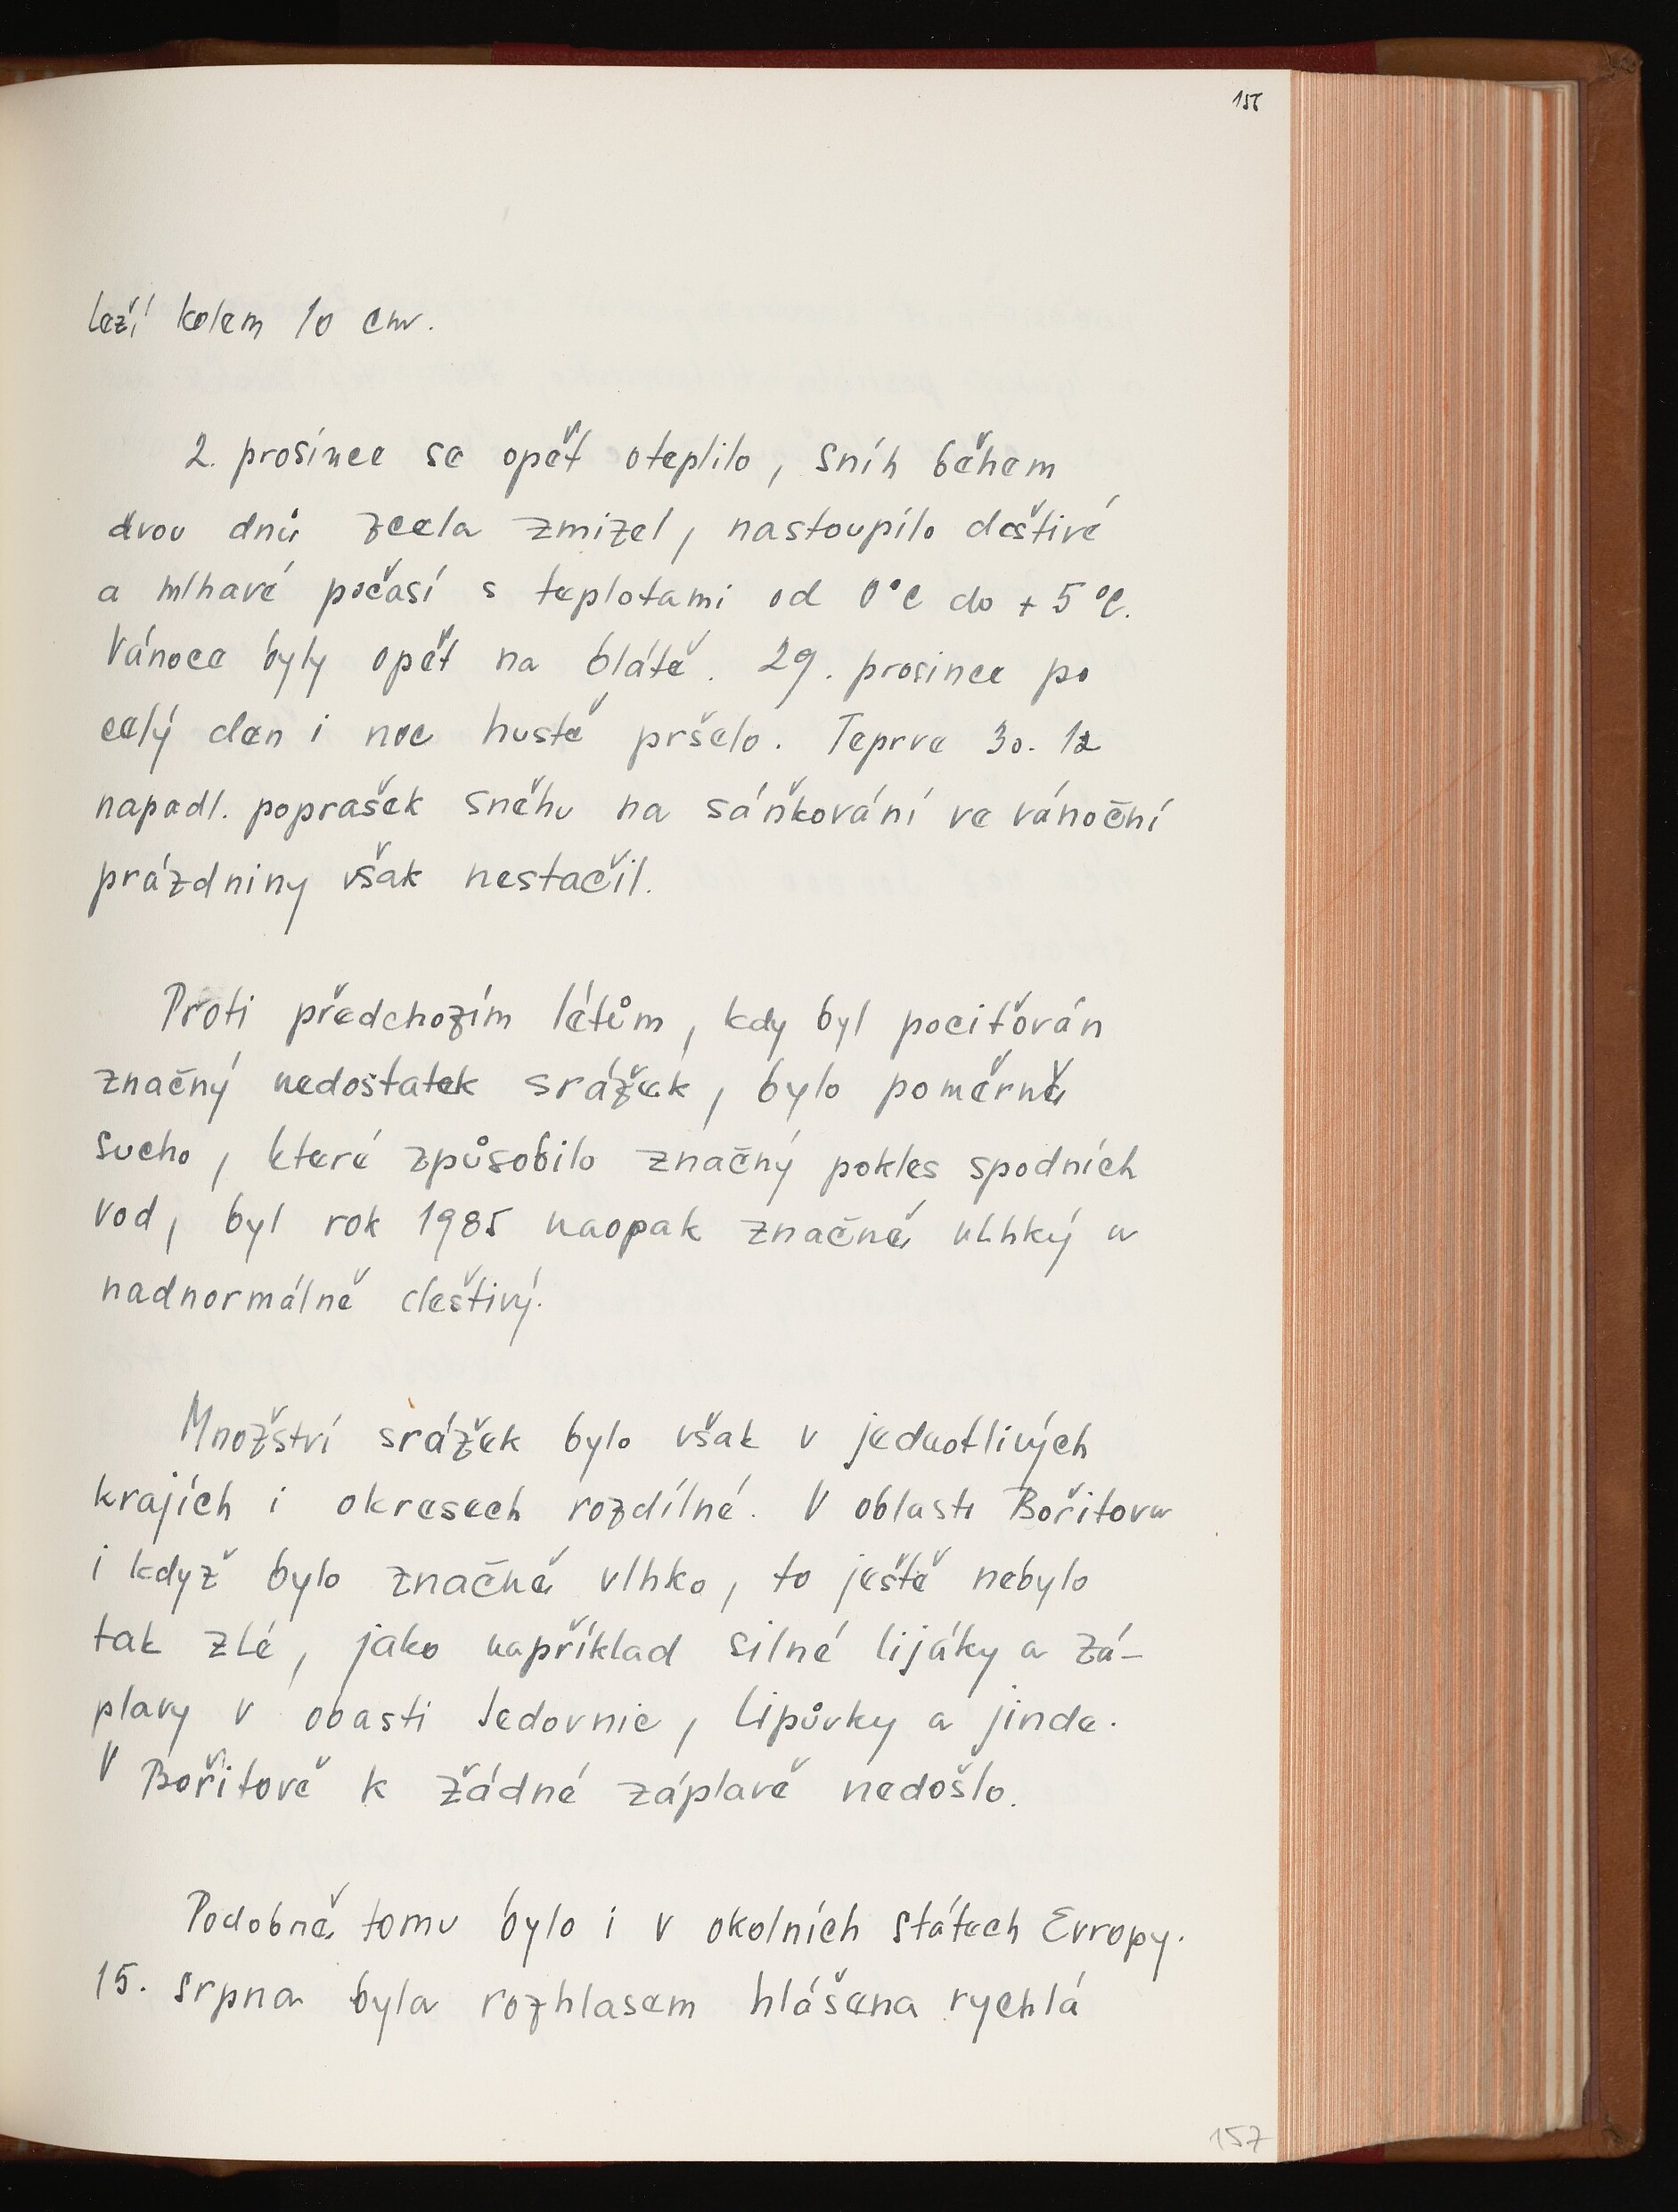 leží kolem 10 cm.
2. prosince se opět oteplilo, sníh během
dvou dnů zcela zmizel, nastoupilo deštivé
a mlhavé počasí s teplotami od 0°C do + 5 °C.
Vánoce byly opět na blátě. 29. prosince po
celý den i noc hustě pršelo. Teprve 30. 12
napadl. poprašek sněhu na sáňkování ve vánoční
prázdniny však nestačil.
Proti předchozím létům, kdy byl pociťován
značný nedostatek srážek, bylo poměrně
sucho, které způsobilo značný pokles spodních
vod, byl rok 1985 naopak značně vlhký a
nadnormálně deštivý.
Množství srážek bylo však v jednotlivých
krajích i okresech rozdílné. V oblasti Bořitova
i když bylo značně vlhko, to ještě nebylo
tak zlé, jako například silné lijáky a zá-
plavy v obasti Jedovnic, Lipůvky a jinde.
V Bořitově k žádné záplavě nedošlo.
Podobně tomu bylo i v okolních státech Evropy.
15. srpna byla rozhlasem hlášena rychlá
157